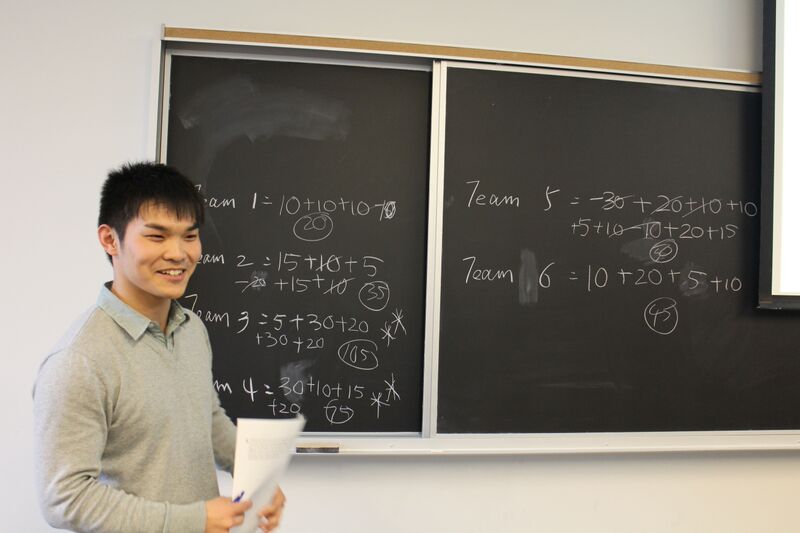 Team 1 = 10+10+10-10
20
Team 2 = 15+10+5
-20+15+10 35
Team 3 = 5+30+20 **
+30+20 105
Team 4 = 30+10+15 **
+20 75
Team 5 = -30+20+10+10
+5+10-10+20+15
Team 6 = 10+20+5+10
45